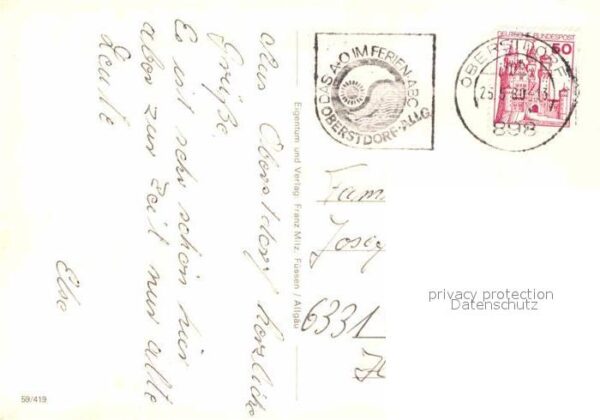 Aus Oberstdorf herzliche
Grüße.
Es ist sehr schön hier
aber zur Zeit nur alte
Leute
Else
Eigentum und Verlag: Franz Milz, Füssen / Allgäu
59/419
DAS A-O IM FERIEN-ABC
OBERSTDORF-ALLG.
DEUTSCHE BUNDESPOST
50
OBERSTDORF
898
Fam
6331
privacy protection
Datenschutz